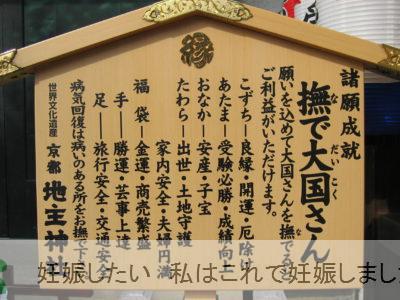 縁
諸願成就
撫で大国さん
なだいこく
願いを込めて大国さんを撫でると
ご利益がいただけます。
こずち―良縁・開運・厄除け
あたま―受験必勝・成績向上
おなか―安産・子宝
たわら―出世・土地守護
家内安全・夫婦円満
福袋―金運・商売繁盛
手―勝運・芸事上達
足―旅行安全・交通安全
病気回復は病いのある所をお撫で下さい
世界文化遺産 京都 地主神社
妊娠したい 私はこれで妊娠しました